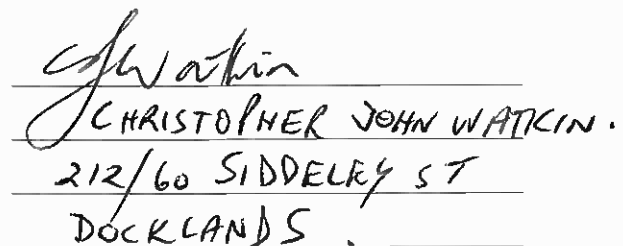 CJWatkin
CHRISTOPHER JOHN WATKIN.
212/60 SIDDELEY ST
DOCKLANDS.